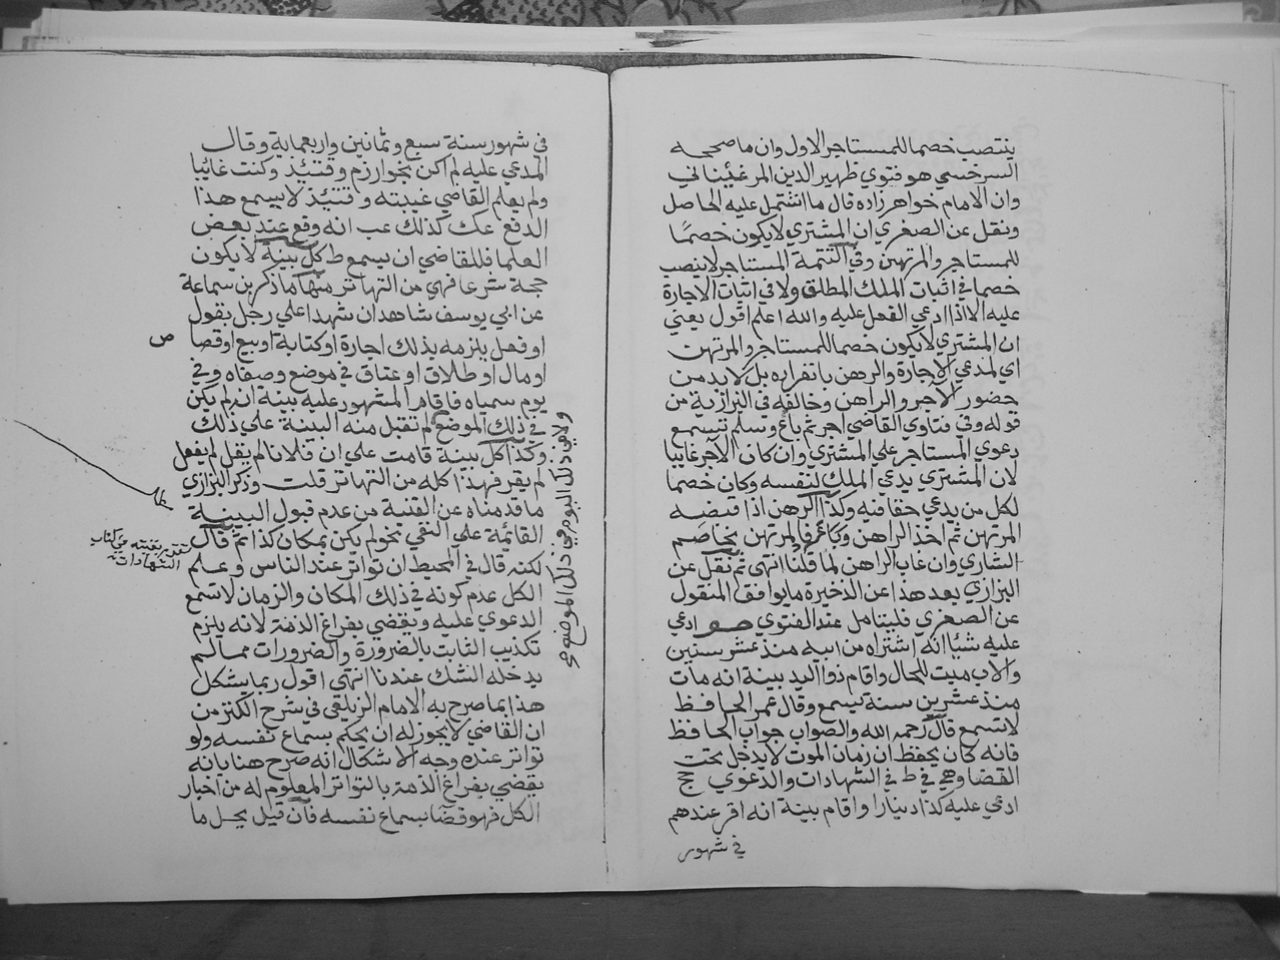 ينتصب خصما للمستاجر الاول وان ما صححه
السرخسي هو فتوي ظهير الدين المرغيناني
وان الامام خواهر زاده قال ما اشتمل عليه الحاصل
ونقل عن الصغري ان المشتري لا يكون خصما
للمستاجر والمرتهن وفي التتمة المستاجر لا ينصب
خصما في اثبات الملك المطلق ولا في اثبات الاجارة
عليه الا اذا ادعي الفعل عليه والله اعلم اقول يعني
ان المشتري لا يكون خصما للمستاجر والمرتهن
اي لمدعي الاجارة والرهن بانفراده بل لا بد من
حضور الآجر والراهن وخالفه في البزازية من
قوله وفي فتاوي القاضي اجر ثم باع وسلم تسمع
دعوي المستاجر علي المشتري وان كان الآجر غايبا
لان المشتري يدعي الملك لنفسه وكان خصما
لكل من يدعي حقا فيه وكذا الرهن اذا قبضه
المرتهن ثم اخذ الراهن وباعه فالمرتهن يخاصم
الشاري وان غاب الراهن لما قلنا انتهي ثم نقل عن
البزازي بعد هذا عن الذخيرة ما يوافق المنقول
عن الصغري فليتامل عند الفتوي ادعي
عليه شيا انه اشتراه من ابيه منذ عشر سنين
والاب ميت للحال واقام ذو اليد بينة انه مات
منذ عشرين سنة يسمع وقال عمر الحافظ
لا تسمع قال رحمه الله والصواب جواب الحافظ
فانه كان يحفظ ان زمان الموت لا يدخل تحت
القضا وهي في ط في الشهادات والدعوي جج
ادعي عليه كذا دينارا واقام بينة انه اقر عندهم
في شهور
في شهور سنة سبع وثمانين واربعماية وقال
المدعي عليه لم اكن بخوارزم وقتئذ وكنت غائبا
ولم يعلم القاضي غيبته وقتئذ لا يسمع هذا
الدفع عك كذلك عب انه وقع عند بعض
العلما فللقاضي ان يسمع ط كل بينة لا يكون
حجة شرعا فهي من التهاتر منها ما ذكر بن سماعة
عن ابي يوسف شاهدان شهدا علي رجل بقول
او فعل يلزمه بذلك اجارة او كتابة او بيع او قصا
ص
او مال او طلاق او عتاق في موضع وصفاه وفي
يوم سمياه فاقام المشهود عليه بينة انه لم يكن
في ذلك الموضع لم تقبل منه البينة علي ذلك
ولا في ذلك اليوم في ذلك الموضع
وكذا كل بينة قامت علي ان فلانا لم يقل لم يفعل
لم يقر فهذا كله من التهاتر قلت وذكر البزازي
ما قدمناه عن القنية من عدم قبول البينة
القائمة علي النفي نحو لم يكن بمكان كذا ثم قال
تقدم بقيته في كتاب
الشهادات
لكنه قال في المحيط ان تواتر عند الناس وعلم
الكل عدم كونه في ذلك المكان والزمان لا تسمع
الدعوي عليه ويقضي بفراغ الذمة لانه يلزم
تكذيب الثابت بالضرورة والضرورات مما لم
يدخله الشك عندنا انتهي اقول ربما يشكل
هذا بما صرح به الامام الزيلعي في شرح الكنز من
ان القاضي لا يجوز له ان يحكم بسماع نفسه ولو
تواتر عنده وجه الاشكال انه صرح هنا بانه
يقضي بفراغ الذمة بالتواتر المعلوم له من اخبار
الكل فهو قضا بسماع نفسه فان قيل يحمل ما